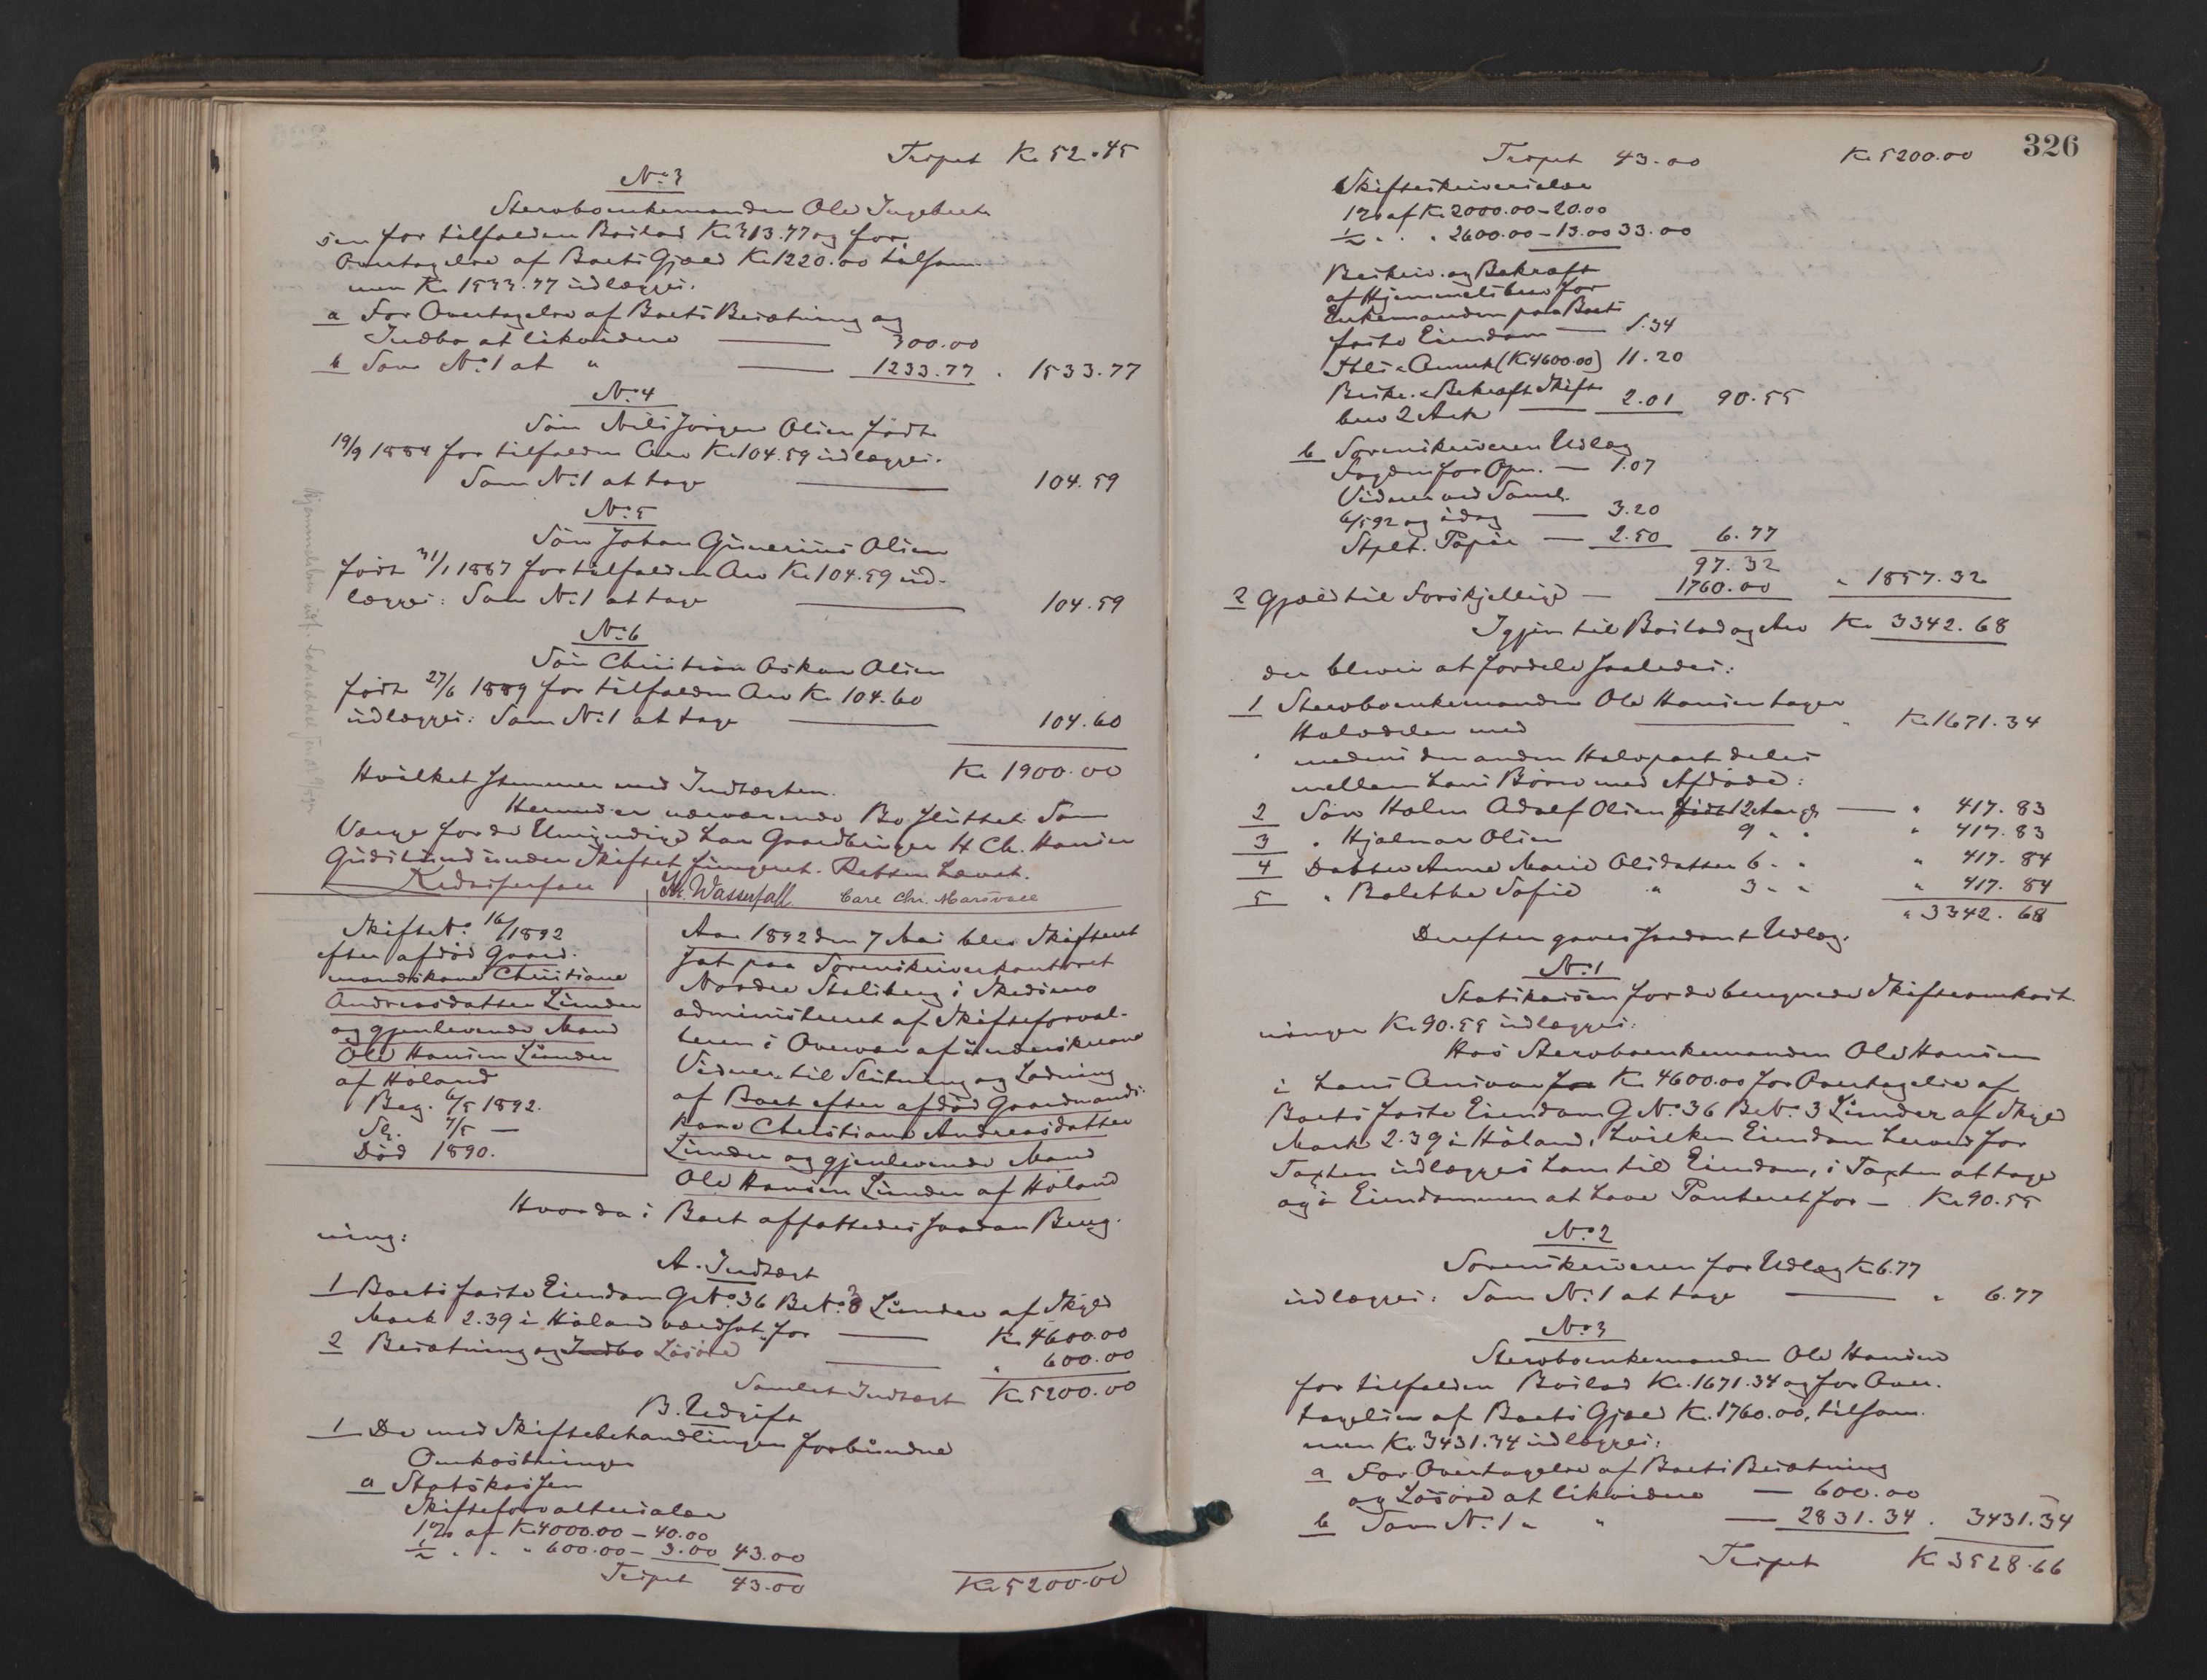 Trspt Kr 52.45
No 3
Stervboenkemanden Ole Ingebret-
sen for tilfalden Boslod Kr 313.77 og for
Overtagelse af Boets Gjæld Kr 1220.00 tilsam-
men Kr 1533.77 udlægges.
a For Overtagelse af Boets Besætning og
Indbo at likvidere 300.00
b Som No 1 at " 1233.77 . 1533.77
No 4
Søn Nils Jørgen Olsen født
19/9 1884 for tilfalden Arv Kr 104.59 udlægges.
Som No 1 at tage 104.59
No 5
Søn Johan Gunerius Olsen
født 31/1 1887 for tilfalden Arv Kr 104.59 ud-
lægges: Som No 1 at tage 104.59
No 6
Søn Christian Oskar Olsen
født 27/6 1889 for tilfalden Arv Kr 104.60
udlægges: Som No 1 at tage 104.60
Kr 1900.00
Hvilket stemmer med Indtægten.
Hermed er nærværende Bo sluttet. Som
Værge for de Umyndige har Gaardbruger H Ch. Hansen
under Skiftet fungeret. Retten hævet.
M. Wasserfall Carl Chr.
Skifte No 16/1892
efter afdød Gaard-
mandskone Christiane
Andreasdatter Lunder
og gjenlevende Mand
Ole Hansen Lunder
af Høland
Beg. 6/5 1892.
Sl. 7/5 —
Død 1890.
Aar 1892 den 7 Mai blev Skifteret
sat paa Sorenskriverkontoret
Nordre Stalsberg i Skedsmo
administreret af Skifteforval-
teren i Overvær af underskrevne
Vidner til Slutning og Lodning
af Boet efter afdød Gaardmands-
kone Christiane Andreasdatter
Lunder og gjenlevende Mand
Ole Hansen Lunder af Høland
Hvorda i Boet affattedes saadan Bereg-
ning:
A. Indtægt
1 Boets faste Eiendom G No 36 B No 3 Lunder af Skyld
Mark 2.39 i Høland værdsat for Kr 4600.00
2 Besætning og Indbo Løsøre " 600.00
Samlet Indtægt Kr 5200.00
B. Udgift
1 De med Skiftebehandlingen forbundne
Omkostninger
a Statskassen
Skifteforvaltersalær
1% af Kr 4000.00 — 40.00
½ " " " 600.00 — 3.00 43.00
Trspt 43.00 Kr 5200.00
326
Trspt 43.00 Kr 5200.00
Skifteskriversalær
1% af Kr 2000.00 — 20.00
½ " . " 2600.00 — 13.00 33.00
Beskriv. og Bekræft
af Hjemmelsbrev for
Enkemanden paa Boets
faste Eiendom — 1.34
(Kr 4600.00) 11.20
Beskr. & Bekræft Skifte-
brev 2 Ark 2.01 90.55
b Sorenskriveren Udlæg
Fogden for Opn. — 1.07
Vidner ved Saml.
6/5 92 og idag — 3.20
Stplt. Papir — 2.50 6.77
97.32
2 Gjæld til Forskjellige — 1760.00 " 1857.32
Igjen til Boslod og Arv Kr 3342.68
der bliver at fordele saaledes:
1 Stervboenkemanden Ole Hansen tager
Halvdelen med Kr 1671.34
medens den anden Halvpart deles
mellem hans Børn med Afdøde:
2 Søn Halm Adolf Olsen født 12 Aar gl — " 417.83
3 " Hjalmar Olsen 9 " " " 417.83
4 Datter Anne Marie Olsdatter 6 " " " 417.84
5 " Bolette Sofie " 3 " " " 417.84
" 3342.68
Derefter gaves saadant Udlæg.
No 1
Statskassen for de beregnede Skifteomkost-
ninger Kr 90.55 udlægges:
Hos Stervboenkemanden Ole Hansen
i hans Ansvar for Kr 4600.00 for Overtagelse af
Boets faste Eiendom G No 36 B No 3 Lunder af Skyld
Mark 2.39 i Høland, hvilken Eiendom herved for
Taxten udlægges ham til Eiendom, i Taxten at tage
og i Eiendommen at have Panteret for — Kr 90.55
No 2
Sorenskriveren for Udlæg Kr 6.77
udlægges: Som No 1 at tage " 6.77
No 3
Stervboenkemanden Ole Hansen
for tilfalden Boslod Kr. 1671.34 og for Over-
tagelsen af Boets Gjæld Kr. 1760.00, tilsam-
men Kr 3431.34 udlægges:
a For Overtagelse af Boets Besætning
og Løsøre at likvidere — 600.00
b Som No 1 " " — 2831.34 . 3431.34
Trspt Kr 3528.66